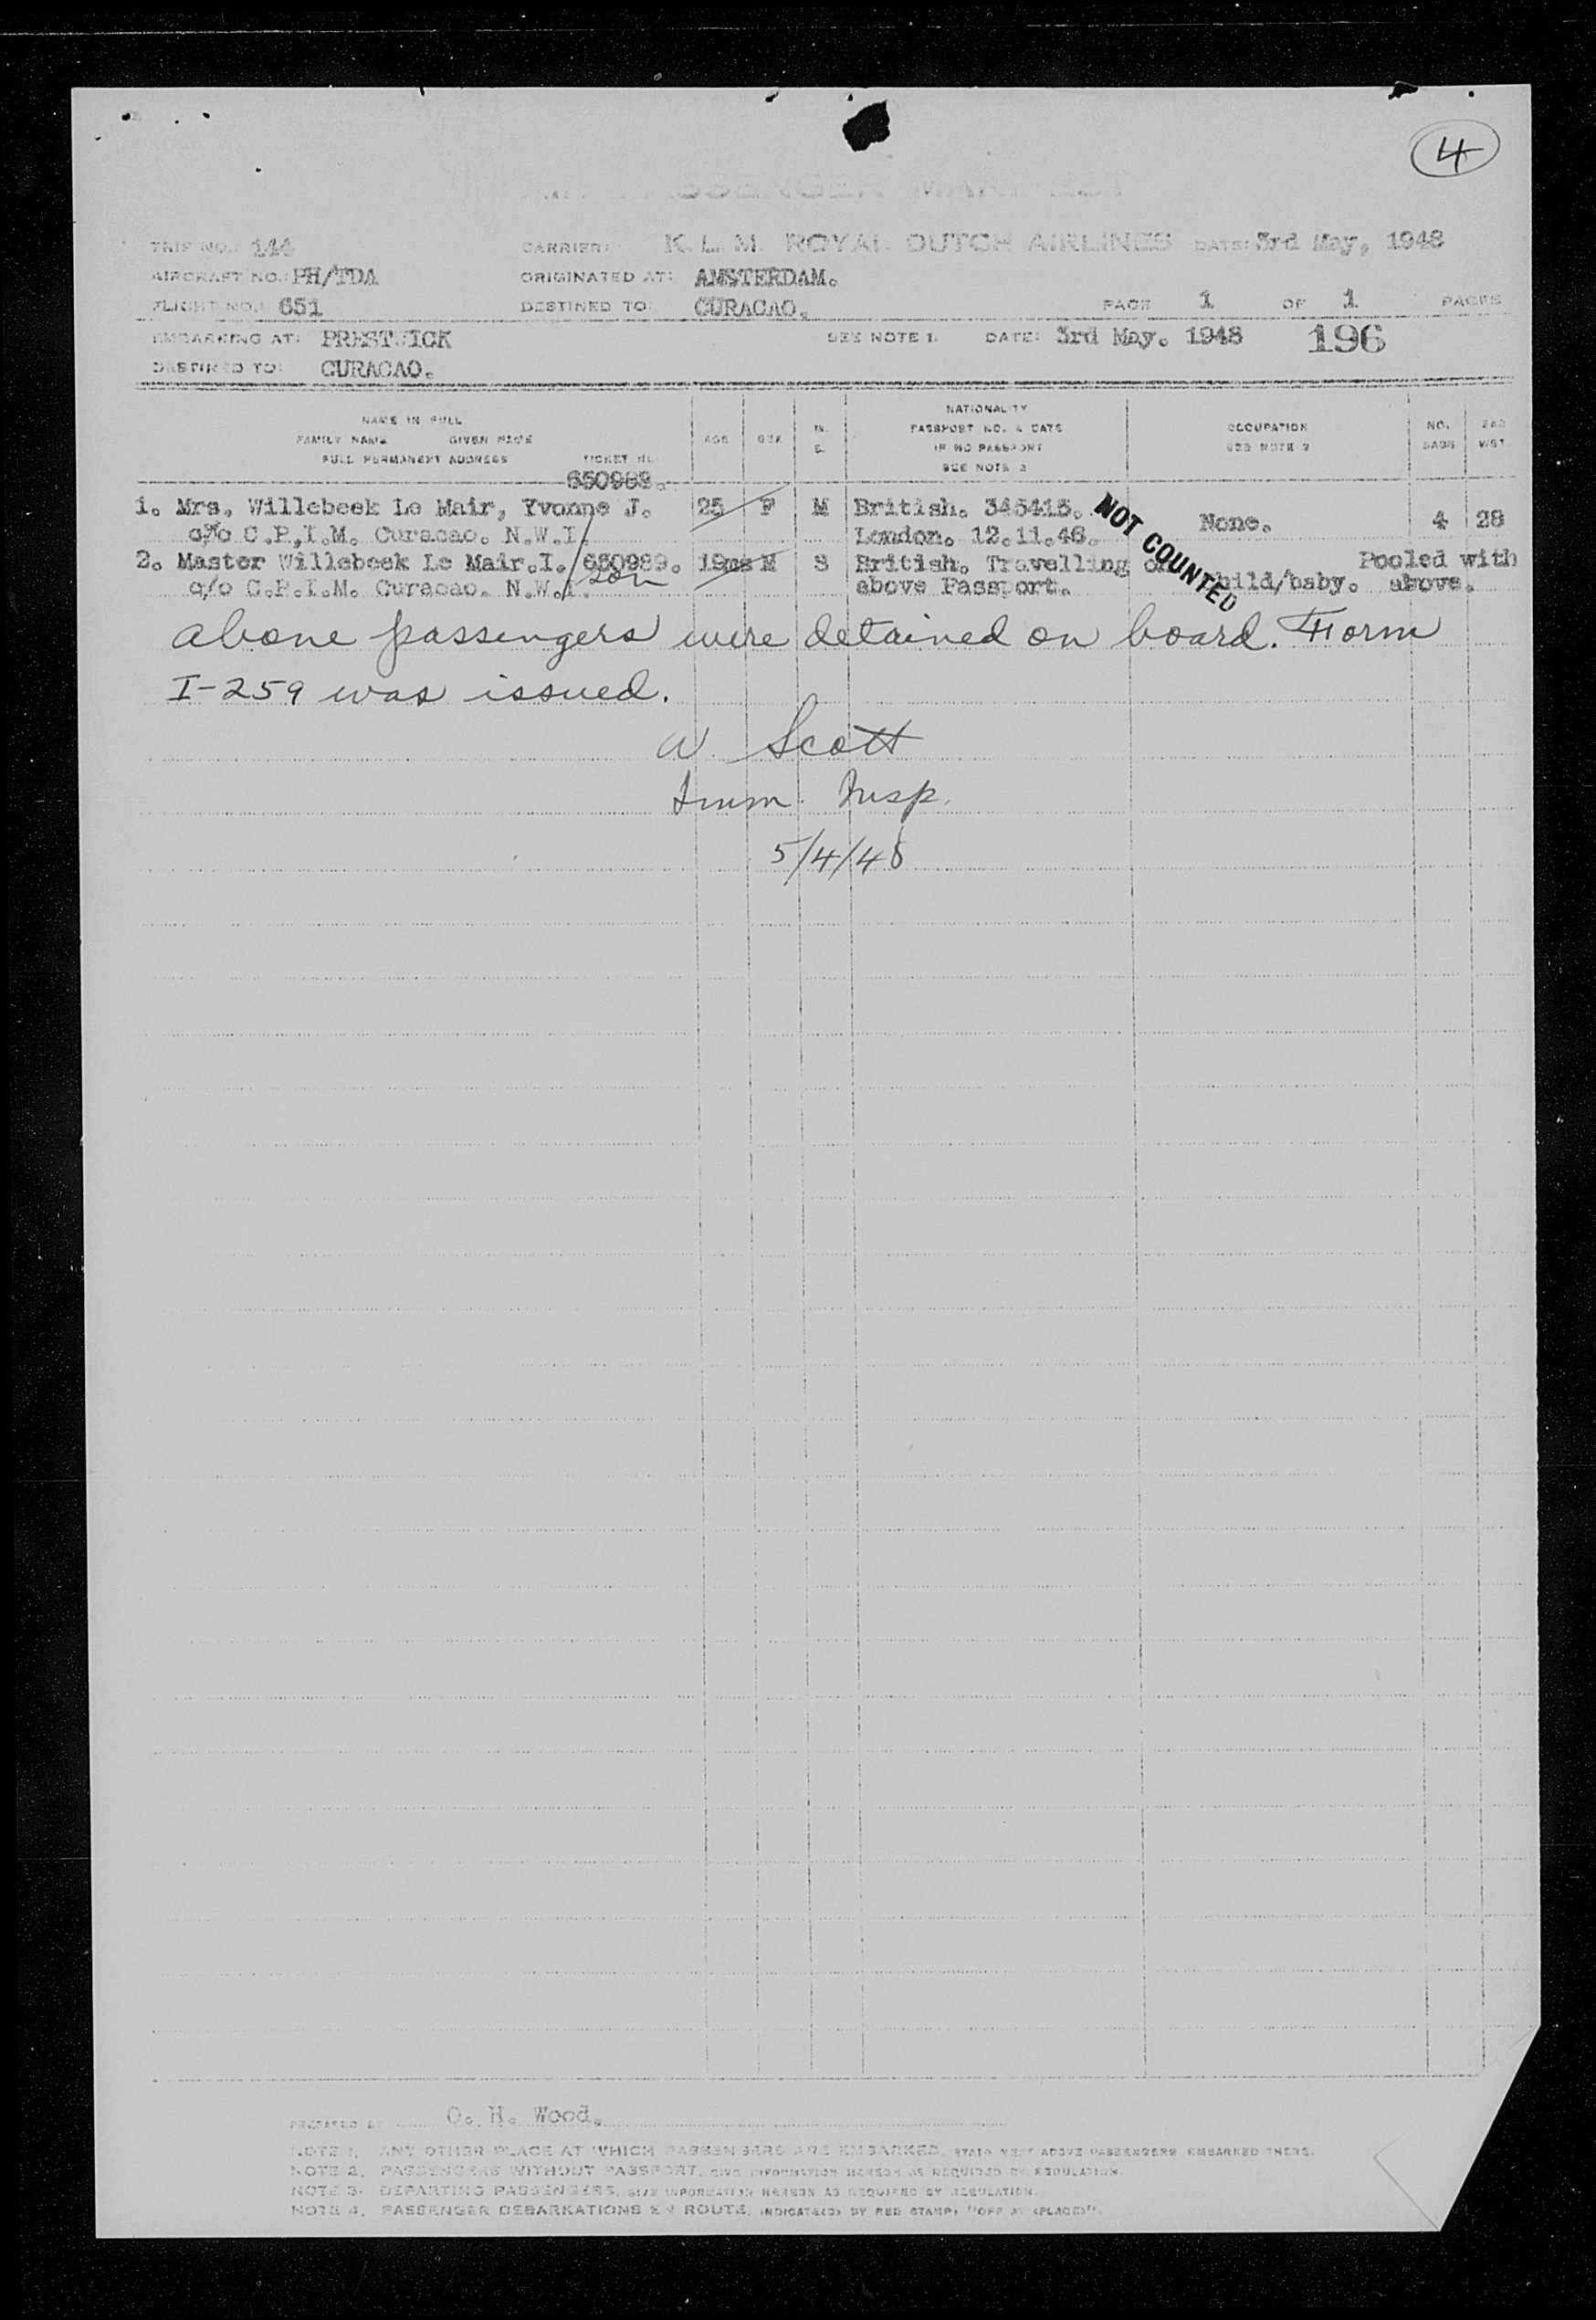 4
PASSENGER MANIFEST
TRIP NO.: 144 CARRIER: K. L. M. ROYAL DUTCH AIRLINES DATE: 3rd May, 1948
AIRCRAFT NO.: PH/TDA ORIGINATED AT: AMSTERDAM.
FLIGHT NO.: 651 DESTINED TO: CURACAO. PAGE 1 OF 1 PAGES
EMBARKING AT: PRESTWICK SEE NOTE 1. DATE: 3rd May. 1948 196
DESTINED TO: CURACAO.
NAME IN FULL NATIONALITY
FAMILY NAME GIVEN NAME AGE SEX M. PASSPORT NO. & DATE OCCUPATION NO. BAG
FULL PERMANENT ADDRESS TICKET NO. S. IF NO PASSPORT SEE NOTE 3 BAGS WGT
SEE NOTE 2
650988.
1. Mrs. Willebeek Le Mair, Yvonne J. 25 F M British. 345415. None. 4 28
c/o C.P.I.M. Curacao. N.W.I. London. 12.11.46.
NOT COUNTED
2. Master Willebeek Le Mair.I. 650989. 19ms M S British. Travelling on Pooled with
son
c/o C.P.I.M. Curacao. N.W.I. above Passport. child/baby. above.
Above passengers were detained on board. Form
I-259 was issued.
W. Scott
Imm. Insp.
5/4/48
PREPARED BY O. H. Wood.
NOTE 1. ANY OTHER PLACE AT WHICH PASSENGERS ARE EMBARKED, STATE NEXT ABOVE PASSENGERS EMBARKED THERE.
NOTE 2. PASSENGERS WITHOUT PASSPORT, GIVE INFORMATION HEREON AS REQUIRED BY REGULATION.
NOTE 3. DEPARTING PASSENGERS, GIVE INFORMATION HEREON AS REQUIRED BY REGULATION.
NOTE 4. PASSENGER DEBARKATIONS EN ROUTE, INDICATE(D) BY RED STAMP, "OFF AT (PLACE)".